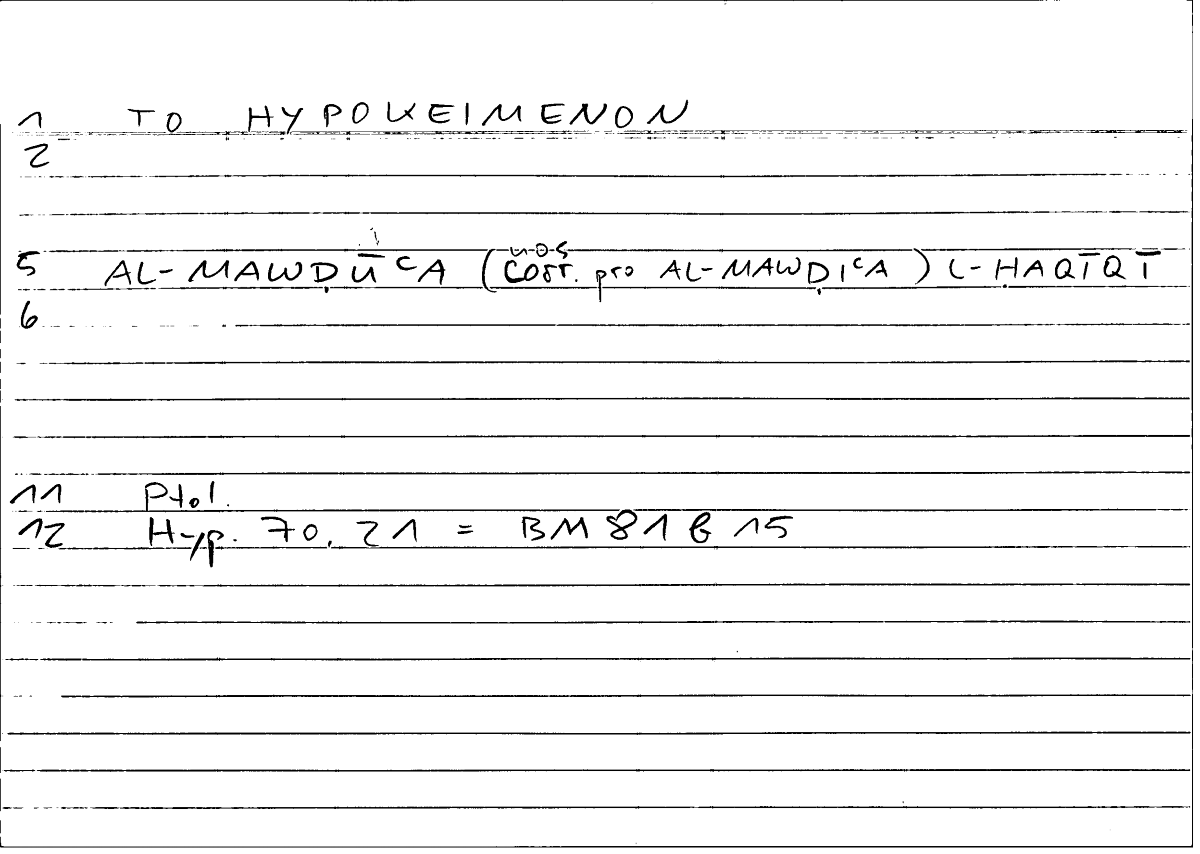 1 TO HYPOKEIMENON
2
nos
5 AL-MAWḌŪʿA (corr. pro AL-MAWḌIʿA) L-ḤAQĪQĪ
6
11 Ptol.
12 Hyp. 70, 21 = BM 81 b 15